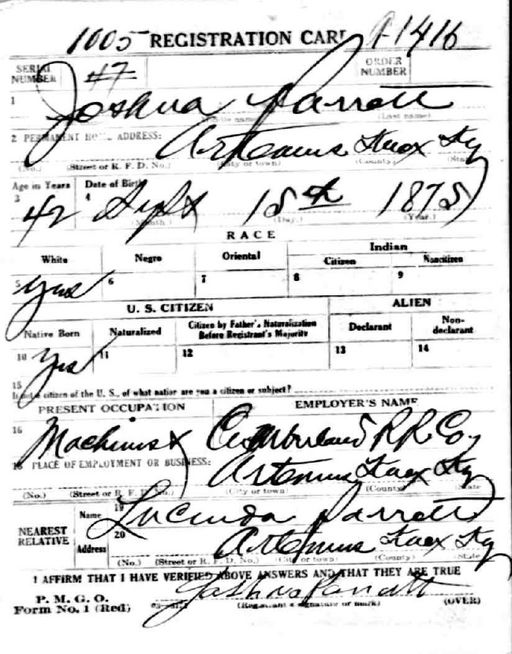 1005 REGISTRATION CARD A1416
SERIAL NUMBER 47 ORDER NUMBER
1 Joshua Parrott
(Last name)
2 PERMANENT HOME ADDRESS: Artemus Knox Ky
(No.) (Street or R. F. D. No.) (City or town) (County) (State)
Age in Years Date of Birth
3 42 4 Sept 15th 1875
(Month.) (Day.) (Year.)
RACE
White Negro Oriental Indian
Citizen Noncitizen
5 yes 6 7 8 9
U. S. CITIZEN ALIEN
Native Born Naturalized Citizen by Father's Naturalization Before Registrant's Majority Declarant Non-declarant
10 yes 11 12 13 14
15 If not a citizen of the U. S., of what nation are you a citizen or subject?
PRESENT OCCUPATION EMPLOYER'S NAME
16 Machinist Cumberland RR Co,
PLACE OF EMPLOYMENT OR BUSINESS: Artemus Knox Ky
(No.) (Street or R. F. D. No.) (City or town) (County) State
NEAREST RELATIVE Name 19 Lucinda Parrott
Address 20 Artemus Knox Ky
(No.) (Street or R. F. D. No.) (City or town) (County) State
I AFFIRM THAT I HAVE VERIFIED ABOVE ANSWERS AND THAT THEY ARE TRUE
P. M. G. O.
Form No. 1 (Red) Joshua Parrott
(Registrant's signature or mark) (OVER)